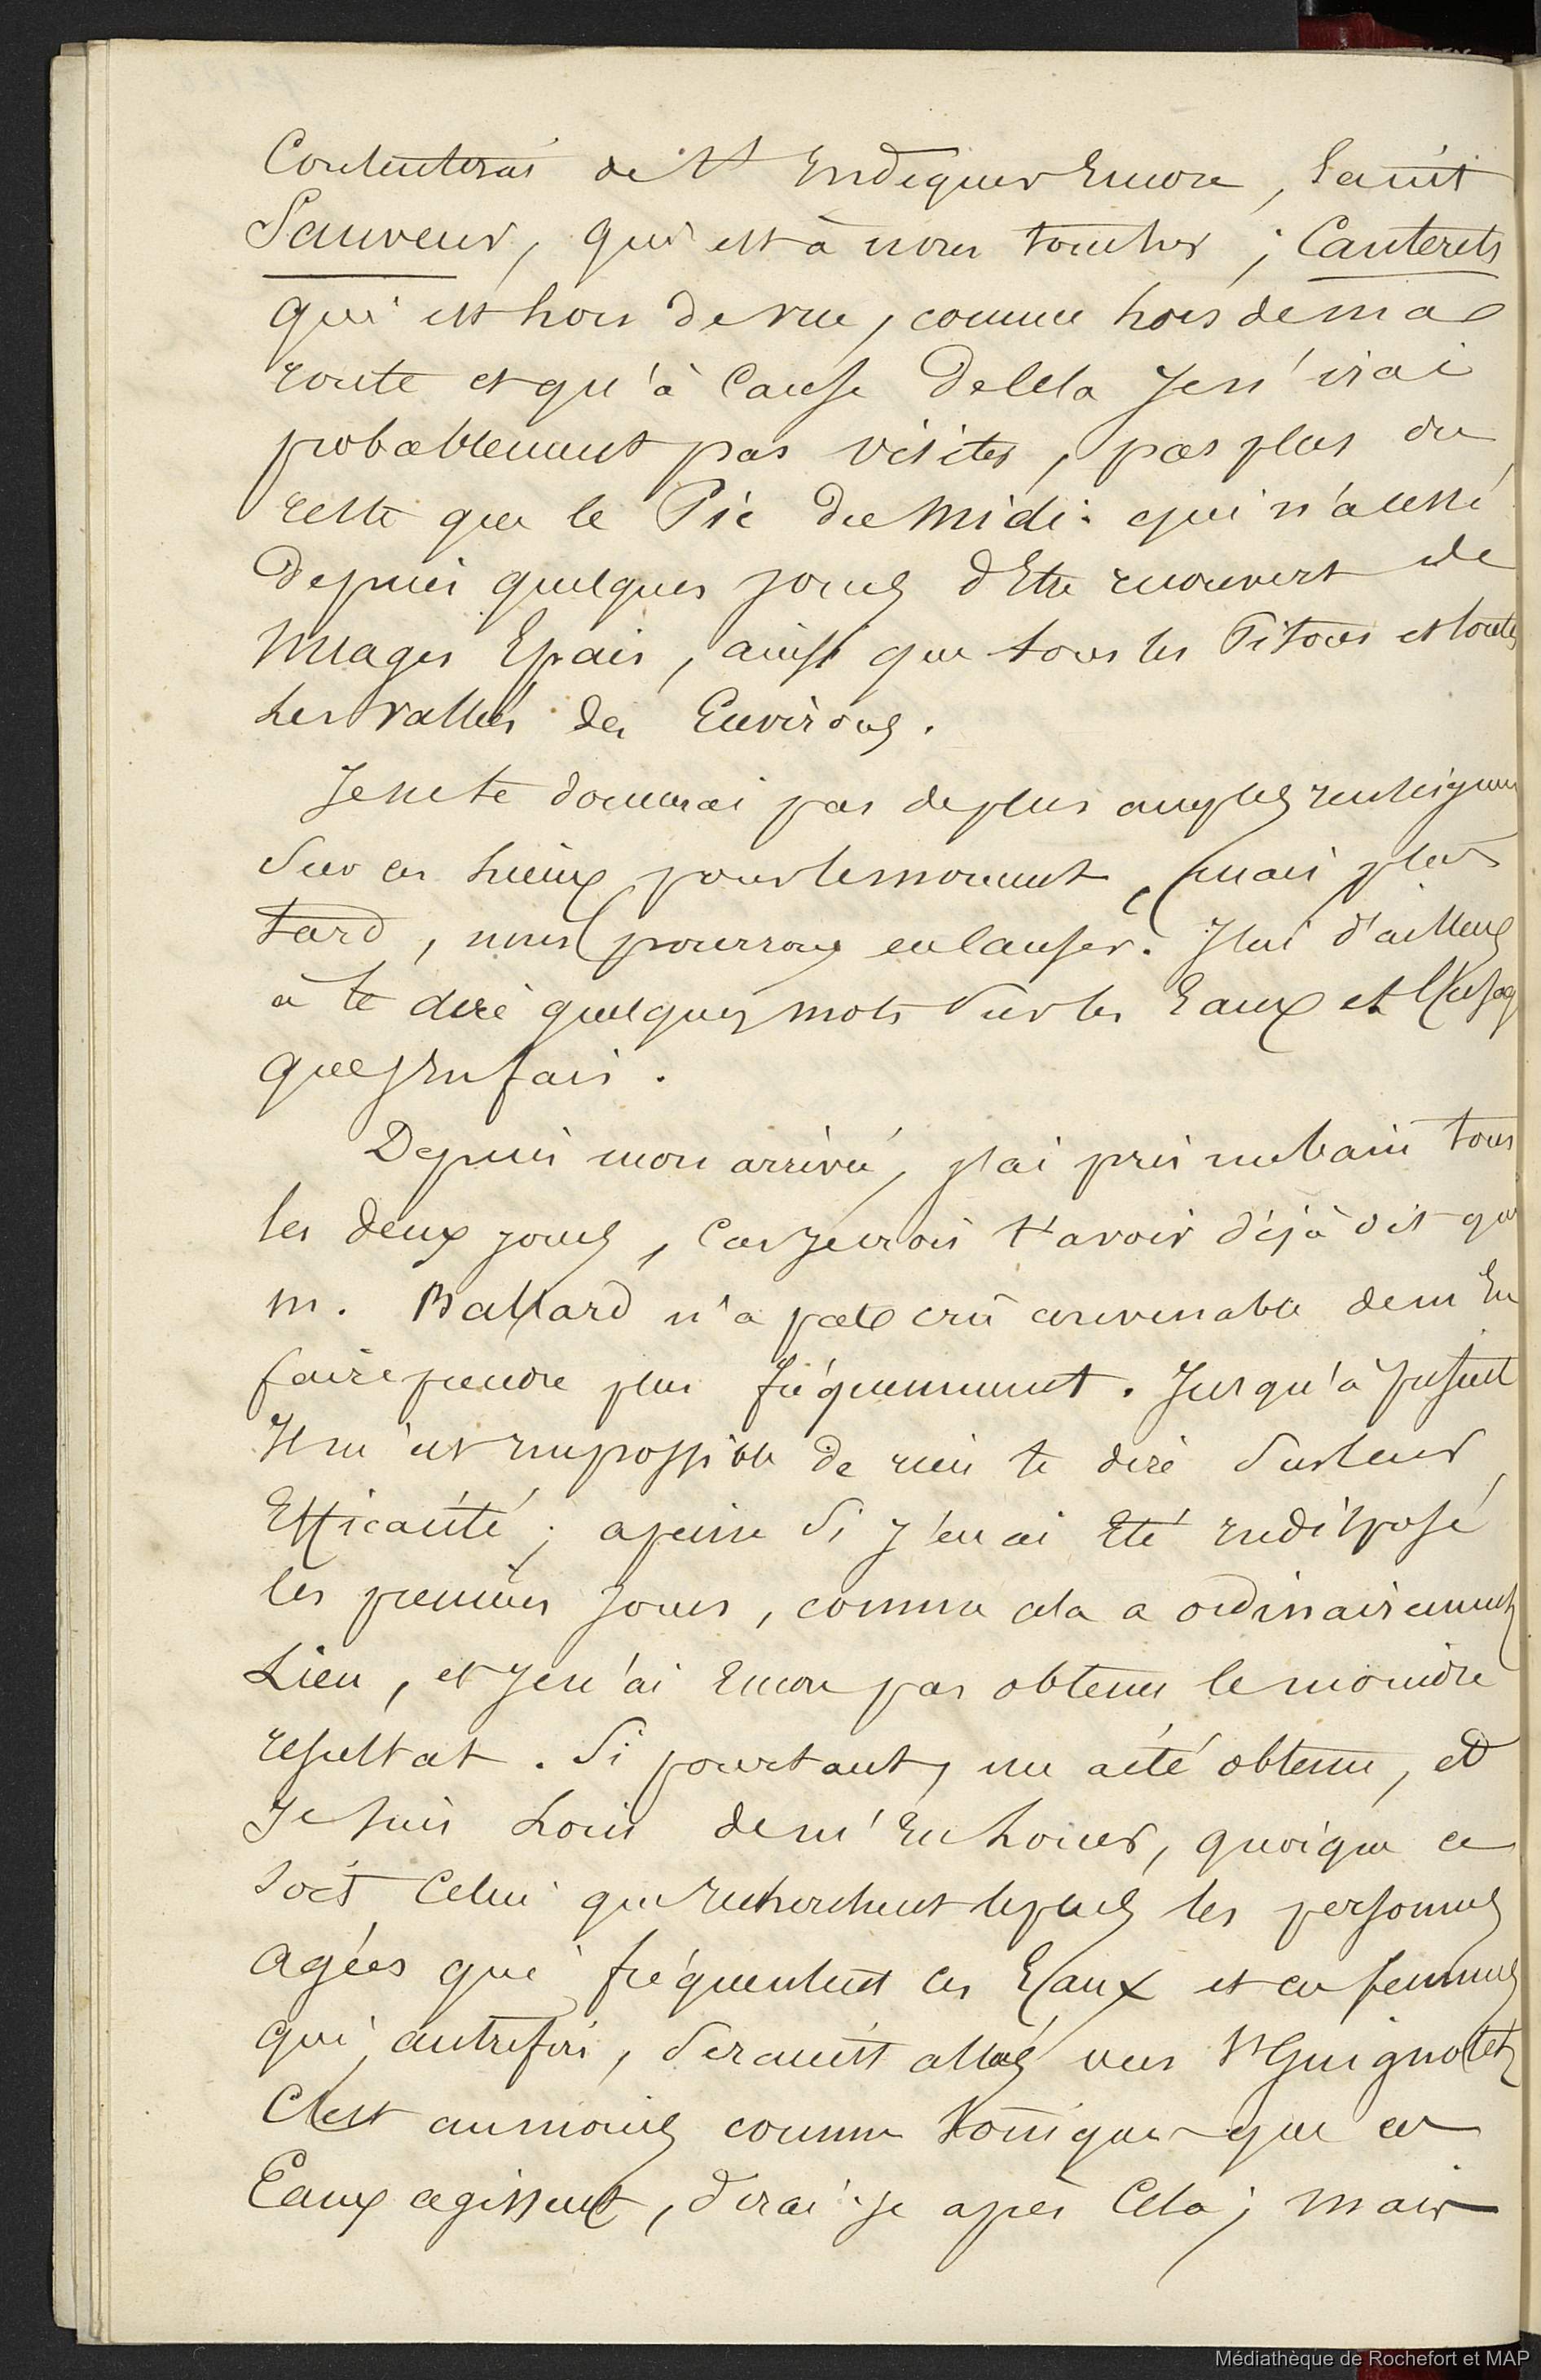 Contenterai de t'Endiquer Encore, Saint
Sauveur, qui est à nous toucher ; Cauterets
qui est hors de vue, comme hors de ma
route et qu'à Cause de cela Je n'irai
probablement pas visiter, pas plus du
reste que le Pic du Midi qui n'a cessé
Depuis quelques jours d'Etre recouvert de
Nuages Epais, ainsi que tous les Pitons et toutes
Les Vallées des Environs.
Je ne te donnerai pas de plus amples
Sur ces Lieux pour le moment, mais plus
tard, nous pourrons en Causer. J'ai d'ailleurs
à te dire quelques mots Sur les Eaux et l'Usage
que j'En fais.
Depuis mon arrivée, j'ai pris un bain tous
les deux jours, Car Je crois t'avoir déjà dit que
M. Ballard n'a pas crû convenable de m'En
faire prendre plus fréquemment. Jusqu'à présent
Il m'est impossible de rien te dire Sur leur
Efficacité ; a peine Si J'en ai Eté indisposé
les premiers jours, comme cela a ordinairement
Lieu, et Je n'ai Encore pas obtenu le moindre
resultat. Si pourtant, un a été obtenu, et
Je suis Loin de m'En Louer, quoique ce
soit Celui que recherchent le plus les personnes
agées qui fréquentent ces Eaux et ces femmes
qui autrefois, Seraient allées vers St Guignolet
C'est au moins comme toniques que ces
Eaux agissent, dirai-je après Cela ; mais
Médiathèque de Rochefort et MAP